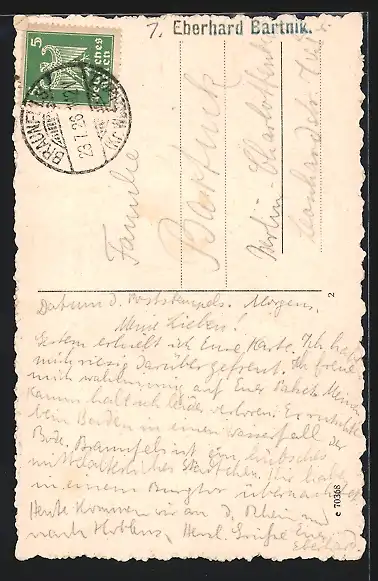 7. Eberhard Bartnik.
5
Deutsches Reich
BRAUNFELS
23.7.26
Familie
Bartnik
Berlin-Charlottenburg
Datum d. Poststempels. Morgens.
Meine Lieben!
Gestern erhielt ich Eure Karte. Ich habe
mich riesig darüber gefreut. Ich freue
mich wahnsinnig auf Euer Paket. Meinen
Kamm hab ich leider verloren. Er rutschte
beim Baden in einen Wasserfall der
Braunfels ist ein hübsches
mittelalterliches Städtchen. Wir
in einem Burgtor übernachtet.
Heute kommen wir an d. Rhein und
nach Koblenz. Herzl. Grüße Euer
Eberhard.
2
c 70358